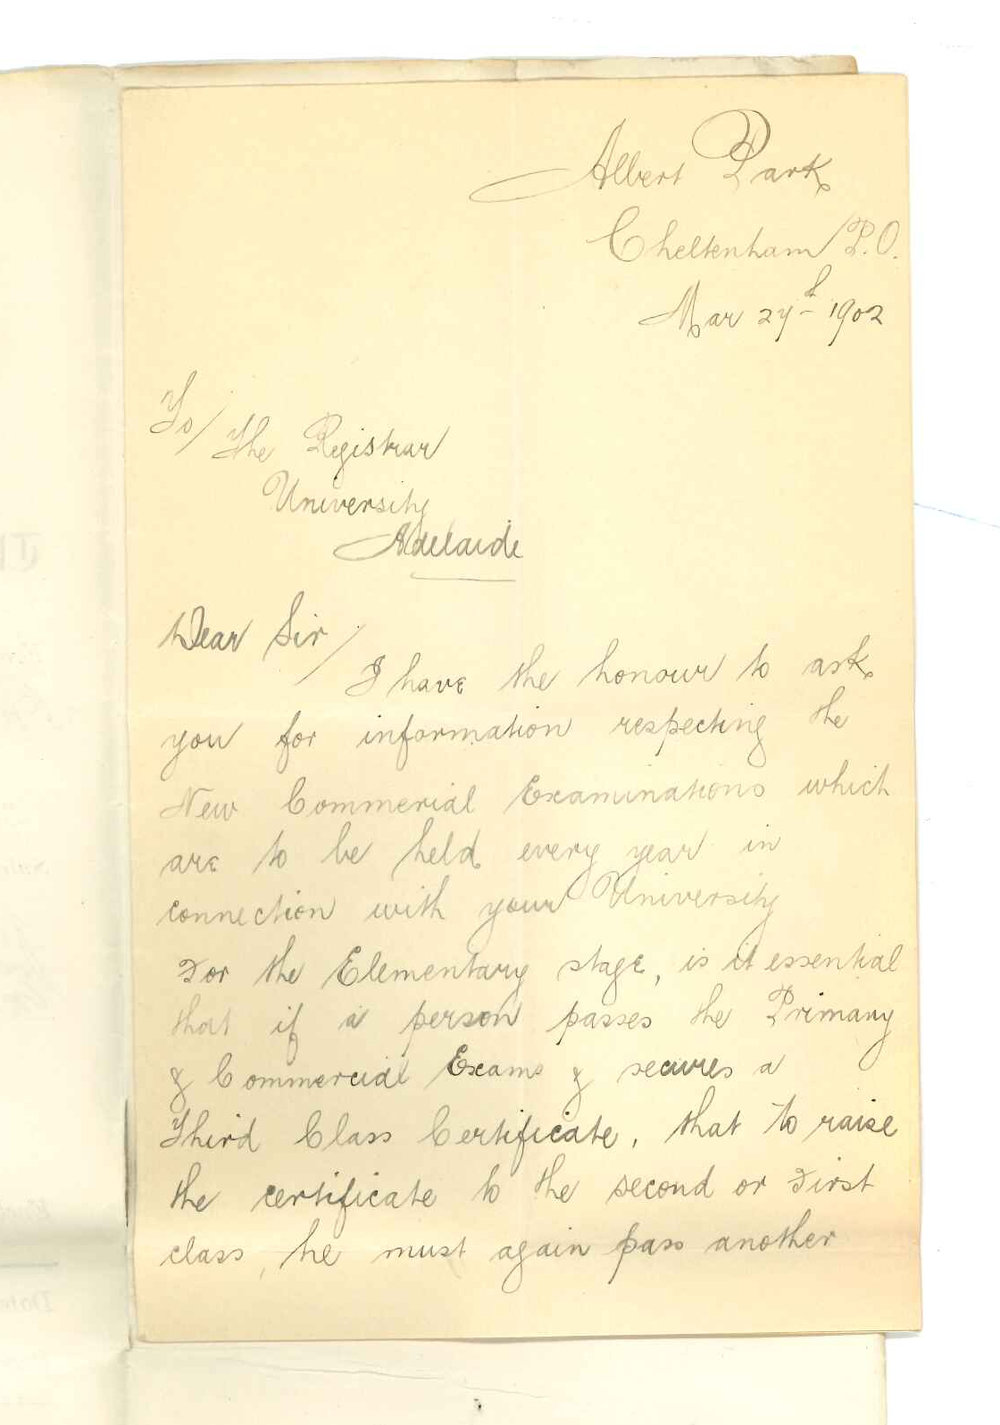 Albert Park
Cheltenham P.O.
Mar 27th 1902
To/
The Registrar
University
Adelaide
Dear Sir/
I have the honour to ask
you for information respecting the
New Commerial Examinations which
are to be held every year in
connection with your University
For the Elementary stage, is it essential
that if a person passes the Primary
& Commercial Exams & secures a
Third Class Certificate, that to raise
the certificate to the second or First
class, he must again pass another